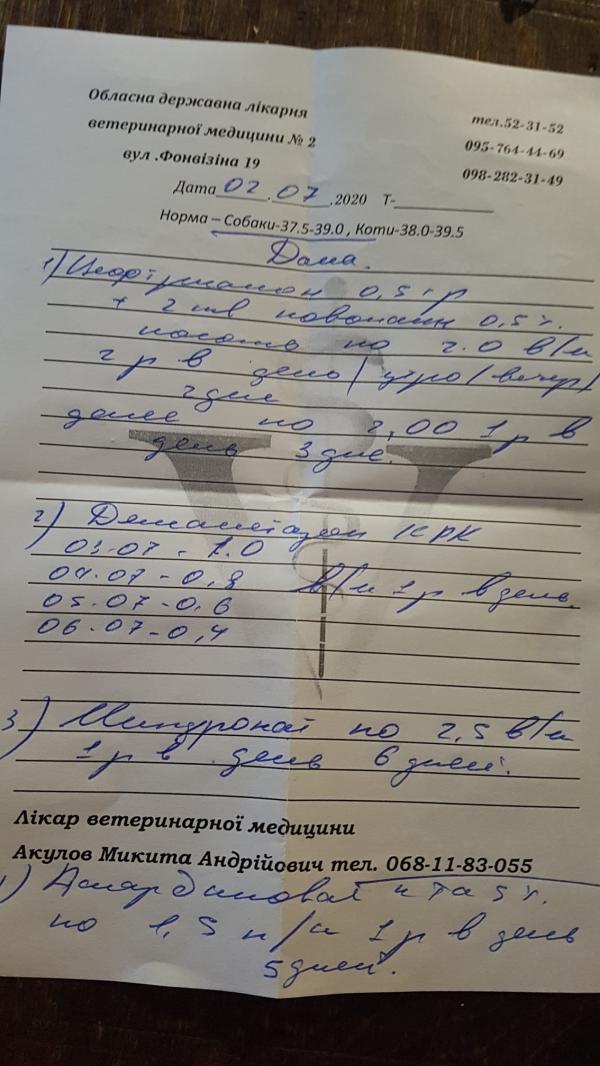 Обласна державна лікарня
ветеринарної медицини № 2
вул .Фонвізіна 19
тел.52-31-52
095-764-44-69
098-282-31-49
Дата 02.07.2020 Т-
Норма – Собаки-37.5-39.0 , Коти-38.0-39.5
Дома.
1) 0,5 гр
+ 2 мл новокаин 0,5%.
по 2.0 в/м
2 р в день/утро/вечер/
2 дне
далее по 2,00 1 р в
день 3 дне.
2) КРК
03.07 - 1.0
04.07 - 0,8 в/м 1 р в день.
05.07 - 0,6
06.07 - 0,4
3) по 2,5 в/м
1 р в день 6 дней.
Лікар ветеринарної медицини
Акулов Микита Андрійович тел. 068-11-83-055
к та 5%.
по 1,5 п/к 1 р в день
5 дней.